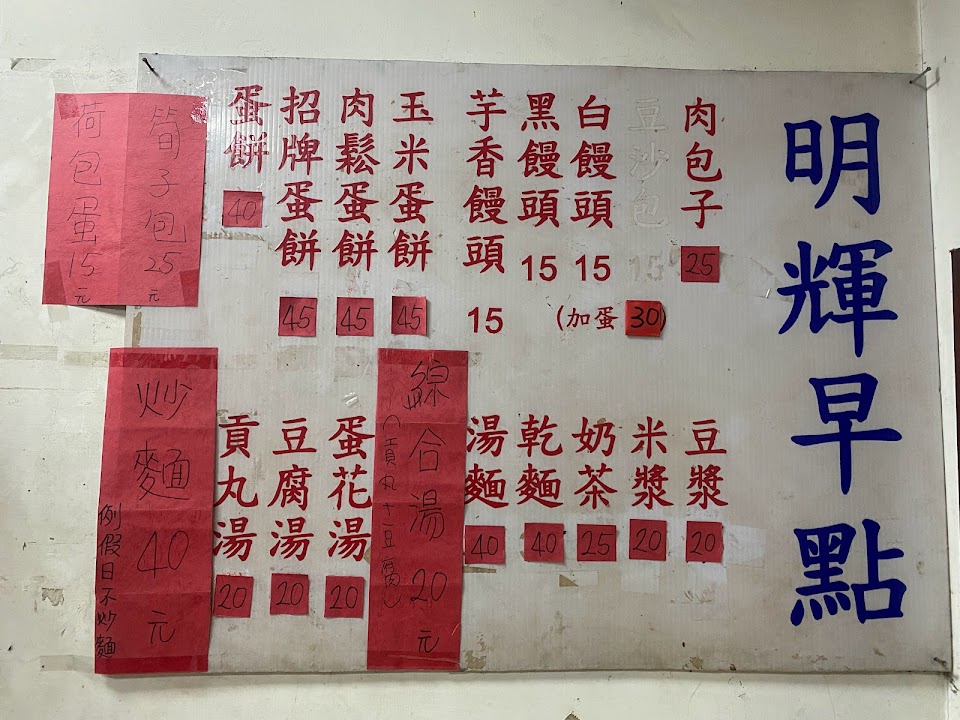 明輝早點
肉包子 25
豆沙包 15
白饅頭 15
(加蛋 30)
黑饅頭 15
芋香饅頭 15
玉米蛋餅 45
肉鬆蛋餅 45
招牌蛋餅 45
蛋餅 40
筍子包 25元
荷包蛋 15元
豆漿 20
米漿 20
奶茶 25
乾麵 40
湯麵 40
綜合湯 20元
(貢丸+豆腐)
蛋花湯 20
豆腐湯 20
貢丸湯 20
炒麵 40元
例假日不炒麵